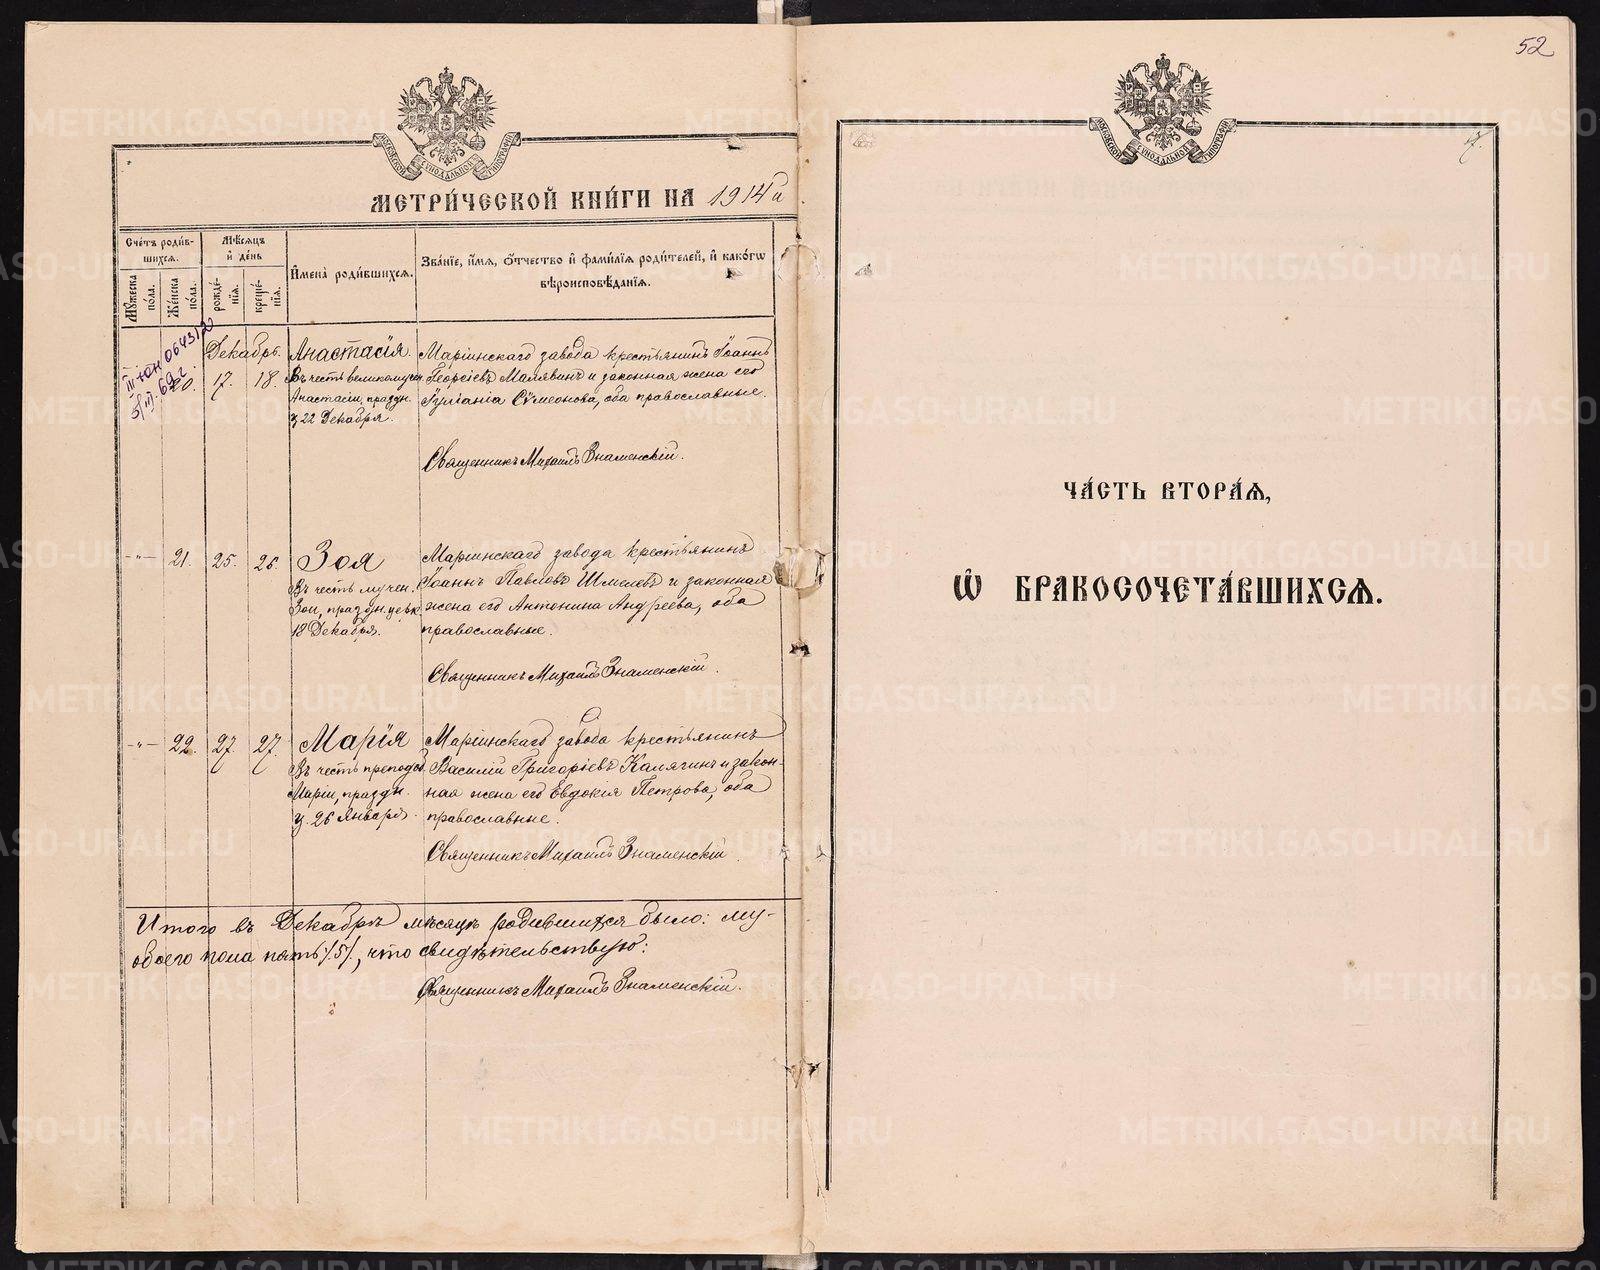 52
МОСКОВСКОЙ СѴНОДАЛЬНОЙ ТИПОГРАФІИ
МЕТРИ́ЧЕСКОЙ КНИ́ГИ НА 1914 й
Сче́тъ роди́в-
шихсѧ.
Мѣ́сѧцъ
и҆ де́нь
И҆мена̀ роди́вшихсѧ.
Зва́нїе, и҆́мѧ, ѻ҆́тчество и҆ фами́лїѧ роди́телей, и҆ како́гѡ
вѣроисповѣ́данїѧ.
Мꙋ́жеска
по́ла.
Же́нска
по́ла.
рожде́-
нїѧ.
креще́-
нїѧ.
III ЮН 064312
5/III. 69 г.
Декабрь.
20. 17. 18.
Анастасія.
Въ честь великомучен.
Анастасіи, праздн.
ц 22 Декабря.
Маріинскаго завода крестьянинъ Іоаннъ
Георгіевъ Малявинъ и законная жена его
Іуліанія Сѵмеонова, оба православные.
Священникъ Михаилъ Знаменскій.
-"- 21. 25. 26.
Зоя
Въ честь мучен.
Зои, праздн. церк.
18 Декабря.
Маріинскаго завода крестьянинъ
Іоаннъ Павловъ Шмелевъ и законная
жена его Антонина Андреева, оба
православные.
Священникъ Михаилъ Знаменскій.
-"- 22. 27. 27.
Марія
Въ честь преподоб.
Маріи, праздн.
ц. 26 Января.
Маріинскаго завода крестьянинъ
Василій Григоріевъ Калягинъ и закон-
ная жена его Евдокія Петрова, оба
православные.
Священникъ Михаилъ Знаменскій.
Итого въ Декабрѣ мѣсяцѣ родившихся было: му-
обоего пола пять /5/, что свидѣтельствую:
Священникъ Михаилъ Знаменскій.
МОСКОВСКОЙ СѴНОДАЛЬНОЙ ТИПОГРАФІИ
ЧА́СТЬ ВТОРА́Ѧ,
Ѡ҆ БРАКОСОЧЕТА́ВШИХСѦ.
METRIKI.GASO-URAL.RU